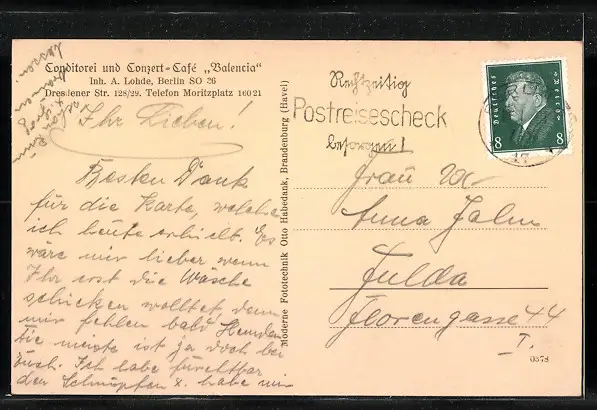 Conditorei und Conzert-Café „Valencia"
Inh. A. Lohde, Berlin SO 36
Dresdener Str. 128/29. Telefon Moritzplatz 16021
Ihr Lieben!
Besten Dank
für die Karte, welche
ich heute erhielt. Es
wäre mir lieber wenn
Ihr erst die Wäsche
schicken wolltet, denn
mir fehlen bald Hemden
die meiste ist ja doch bei
Euch. Ich habe furchtbar
den Schnupfen u. habe mir
Moderne Fototechnik Otto Habedank, Brandenburg (Havel)
Rechtzeitig
Postreisescheck
besorgen!
Deutsches Reich
8 8
Frau
Anna Jahn
Fulda
Florengasse 44
I.
0578